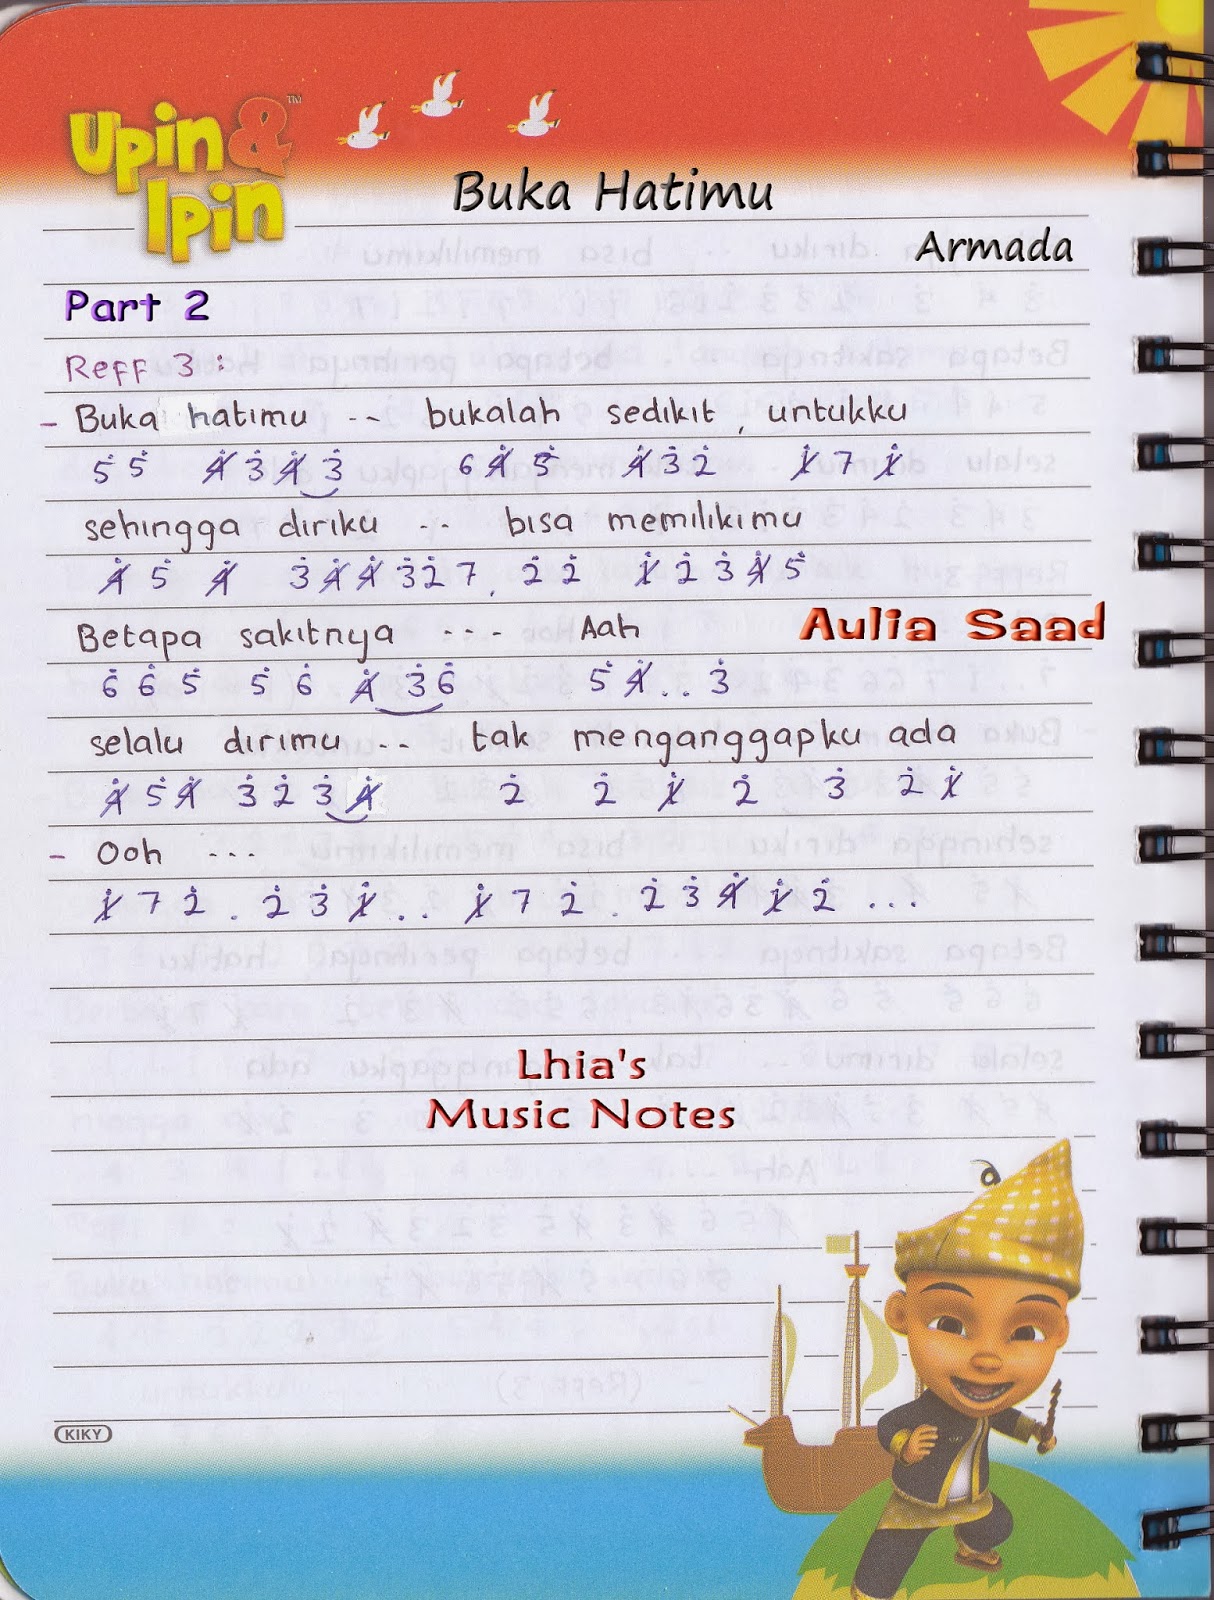 Upin &™
Ipin
Buka Hatimu
Armada
Part 2
Reff 3 :
- Buka hatimu -- bukalah sedikit, untukku
5̇ 5̇ 4̸̇ 3̇ 4̸̇ 3̇ 6 4̸̇ 5̇ 4̸̇ 3̇ 2̇ 1̸̇ 7 1̸̇
sehingga diriku -- bisa memilikimu
4̸̇ 5̇ 4̸̇ 3̇ 4̸̇ 4̸̇ 3̇ 2̇ 7 . 2̇ 2̇ 1̸̇ 2̇ 3̇ 4̸̇ 5̇
Betapa sakitnya --- Aah
Aulia Saad
6̇ 6̇ 5̇ 5̇ 6̇ 4̸̇ 3̇ 6̇ 5̇ 4̸̇ . . 3̇
selalu dirimu -- tak menganggapku ada
4̸̇ 5̇ 4̸̇ 3̇ 2̇ 3̇ 4̸̇ 2̇ 2̇ 1̸̇ 2̇ 3̇ 2̇ 1̸̇
- Ooh ...
1̸̇ 7 2̇ . 2̇ 3̇ 1̸̇ . . 1̸̇ 7 2̇ . 2̇ 3̇ 4̸̇ 1̸̇ 2̇ ...
Lhia's
Music Notes
KIKY